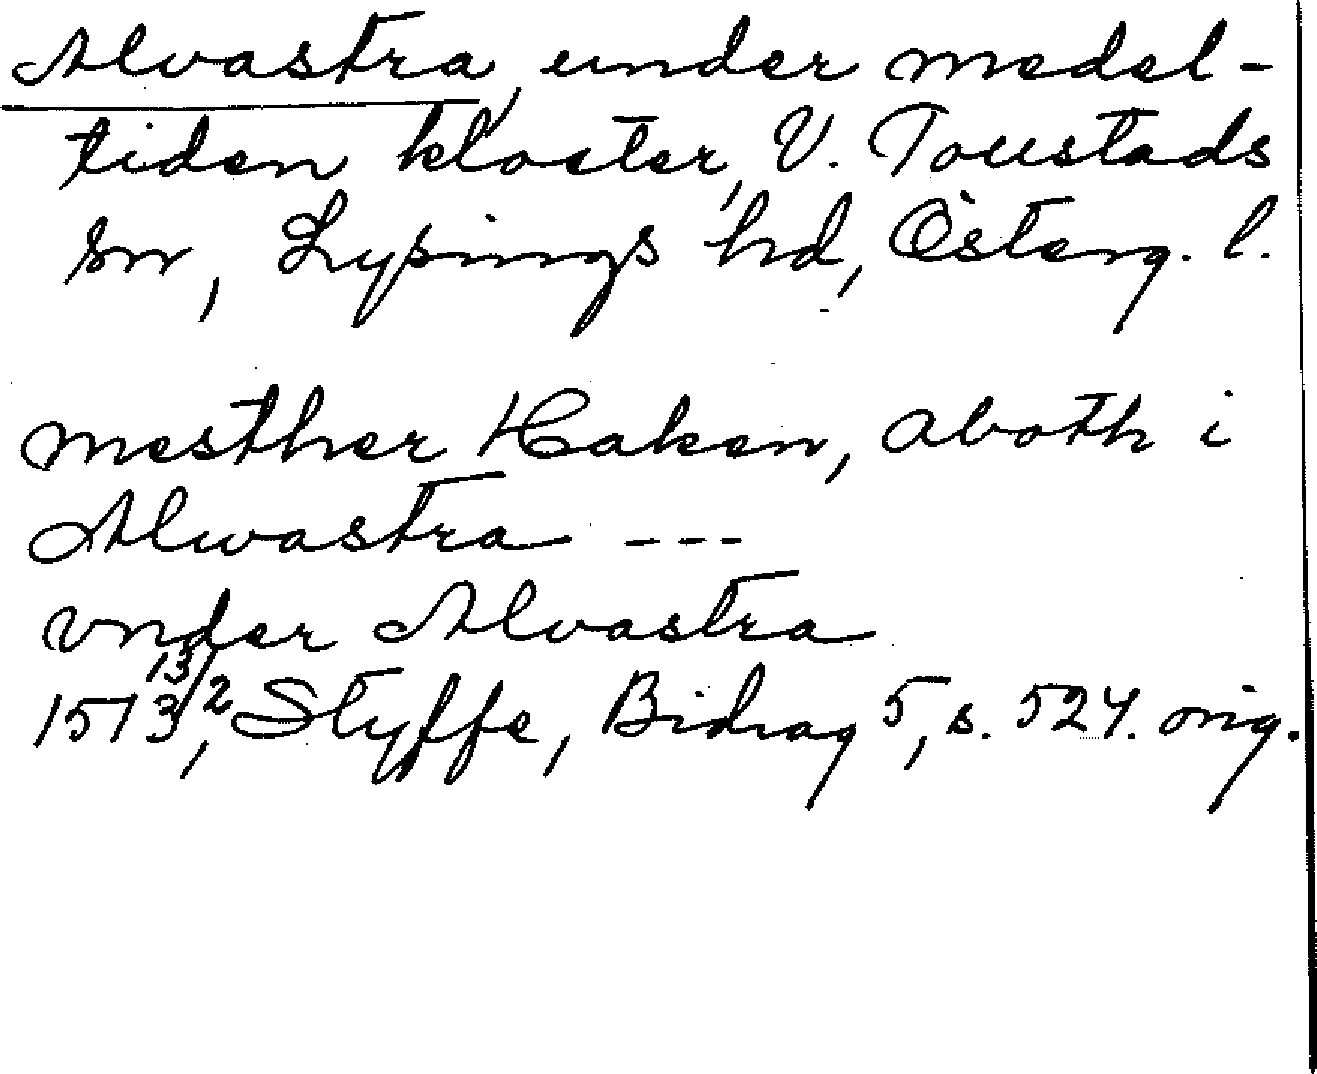 Alvastra, under medel-
tiden kloster, V. Toustads
sn, Lysings hd, Österg. l.
mesther Haken, aboth i
Alwastra ---
vnder Alvastra
1513 13/2, Styffe, Bidrag 5, s. 524. orig.